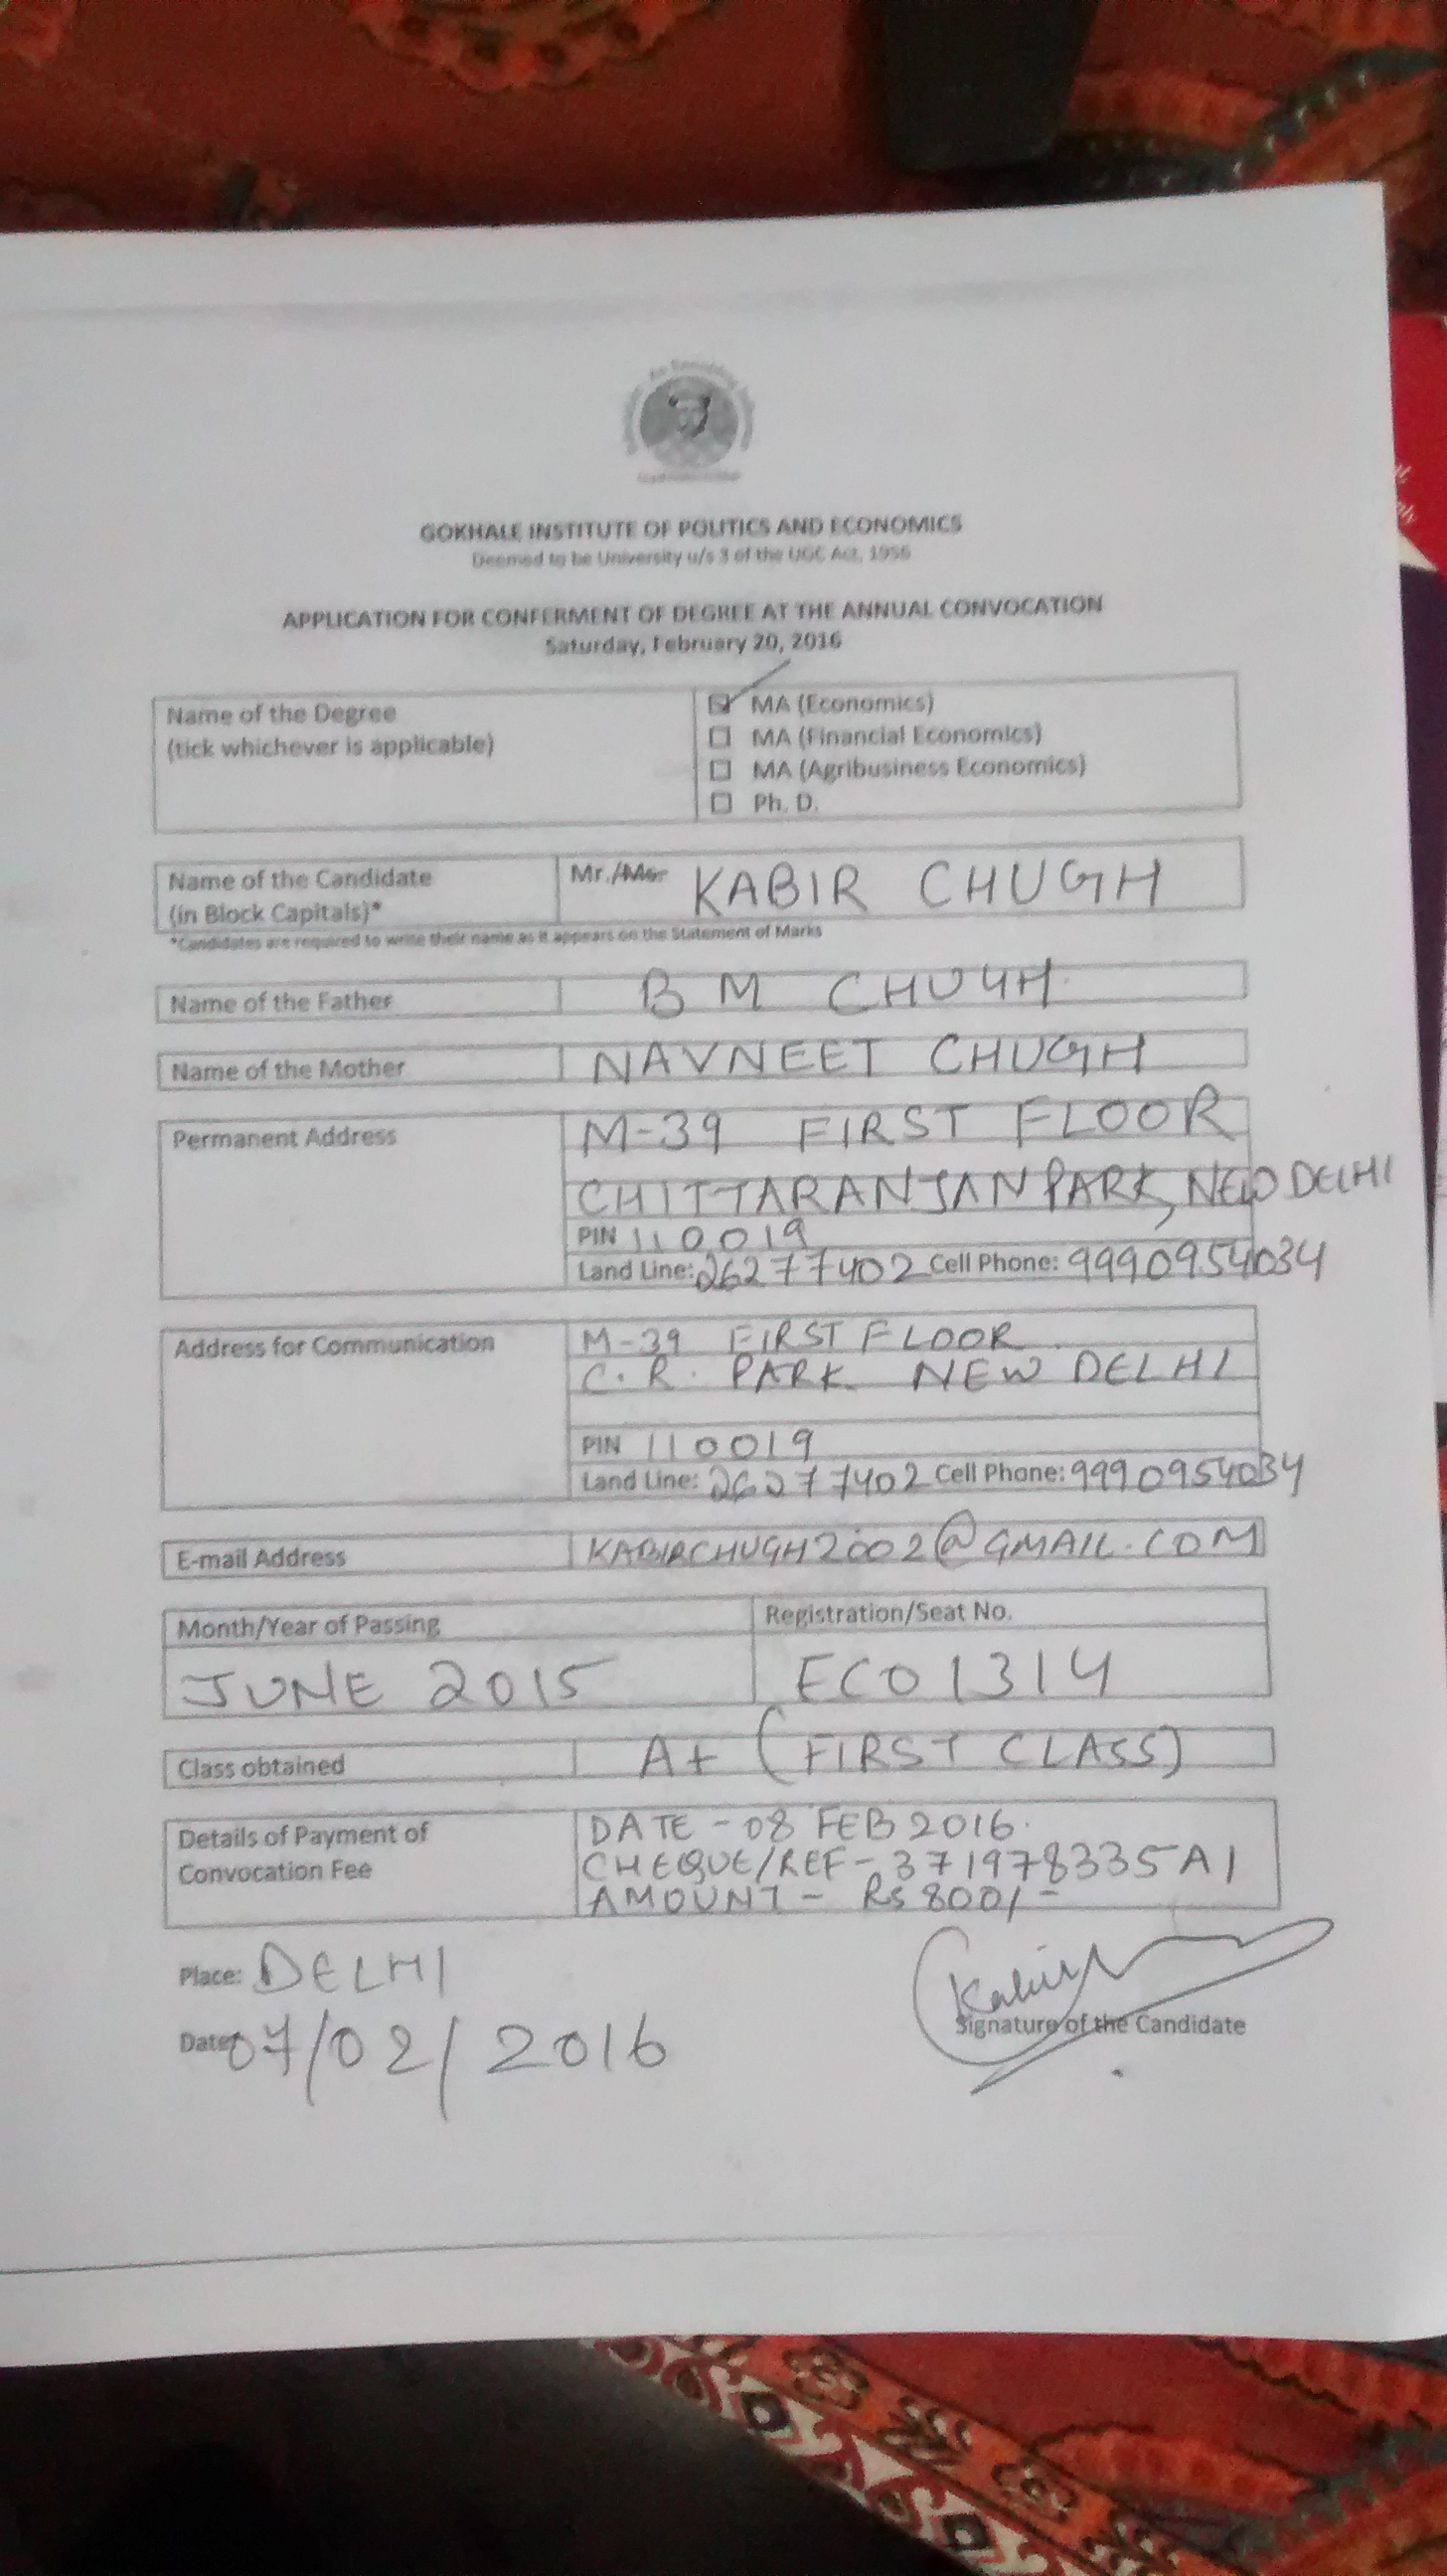 GOKHALE INSTITUTE OF POLITICS AND ECONOMICS
Deemed to be University u/s 3 of the UGC Act, 1956
APPLICATION FOR CONFERMENT OF DEGREE AT THE ANNUAL CONVOCATION
Saturday, February 20, 2016
Name of the Degree
(tick whichever is applicable)
☑ MA (Economics)
☐ MA (Financial Economics)
☐ MA (Agribusiness Economics)
☐ Ph. D.
Name of the Candidate
(in Block Capitals)*
Mr./Ms. KABIR CHUGH
*Candidates are required to write their name as it appears on the Statement of Marks
Name of the Father B M CHUGH
Name of the Mother NAVNEET CHUGH
Permanent Address M-39 FIRST FLOOR
CHITTARANJAN PARK, NEW DELHI
PIN 110019
Land Line: 26277402 Cell Phone: 9990954034
Address for Communication M-39 FIRST FLOOR
C.R. PARK NEW DELHI
PIN 110019
Land Line: 26277402 Cell Phone: 9990954034
E-mail Address KABIRCHUGH2002@GMAIL.COM
Month/Year of Passing Registration/Seat No.
JUNE 2015 ECO1314
Class obtained A+ (FIRST CLASS)
Details of Payment of
Convocation Fee
DATE - 08 FEB 2016.
CHEQUE/REF - 371978335A1
AMOUNT - Rs 800/-
Place: DELHI
Date: 07/02/2016
Kabir
Signature of the Candidate